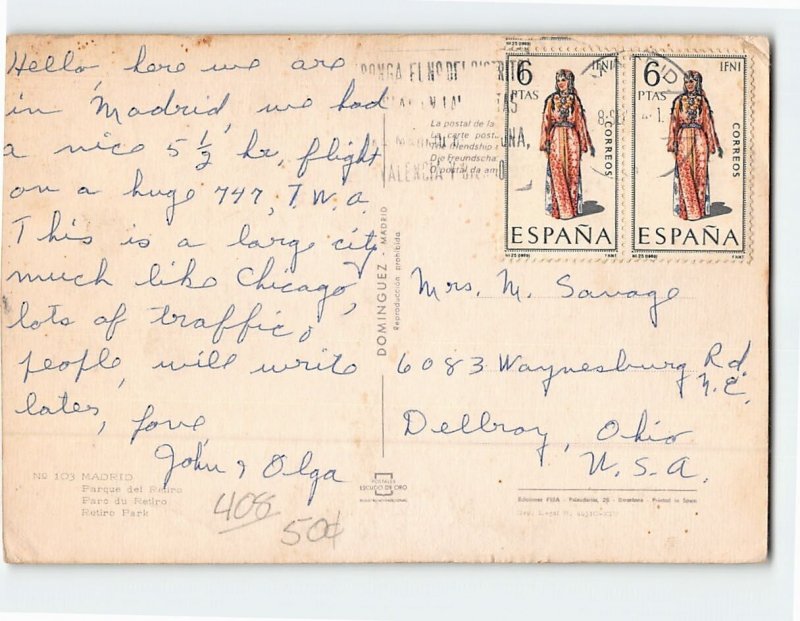 Hello, here we are
in Madrid, we had
a nice 5 1/2 hr, flight
on a huge 747, T.W.A.
This is a large city
much like Chicago,
lots of traffic &
people, will write
later, love
John & Olga
Nº 103 MADRID
Parque del Retiro
Parc du Retiro
Retiro Park
408
50¢
PONGA EL Nº DEL DISTRITO
La postal de la
La carte post
friendship
Die Freundscha
O postal da am
DOMINGUEZ - MADRID
Reproducción prohibida
POSTALES
ESCUDO DE ORO
6 IFNI
PTAS
CORREOS
ESPAÑA
6 IFNI
PTAS
CORREOS
ESPAÑA
Mrs. M. Savage
6083 Waynesburg Rd
N.E.
Dellroy, Ohio
U.S.A.
Ediciones FISA - Palaudarias, 26 - Barcelona Printed in Spain
Dep. Legal B.